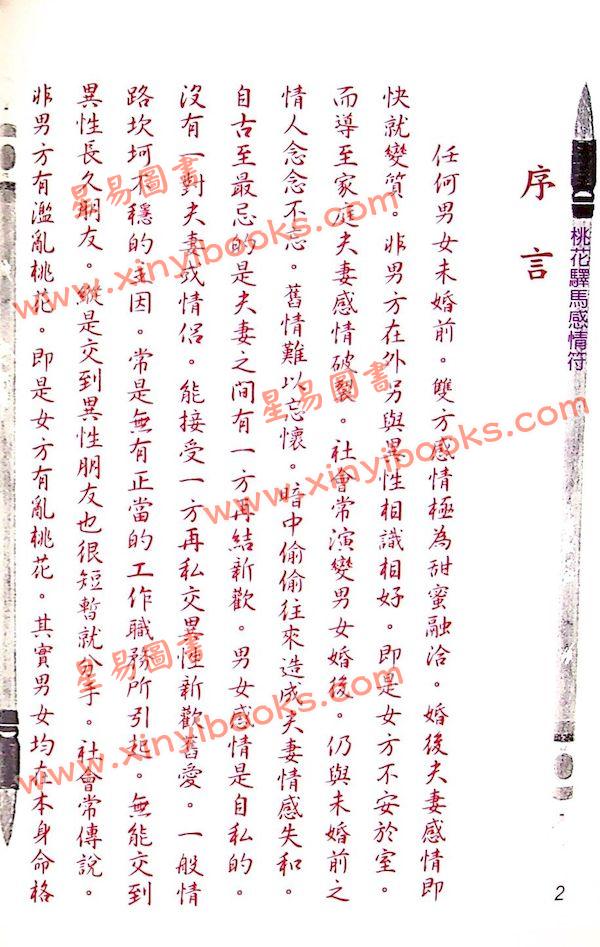 桃花驛馬感情符
序言
任何男女未婚前。雙方感情極為甜蜜融洽。婚後夫妻感情即
快就變質。非男方在外另與異性相識相好。即是女方不安於室。
而導至家庭夫妻感情破裂。社會常演變男女婚後。仍與未婚前之
情人念念不忘。舊情難以忘懷。暗中偷偷往來造成夫妻情感失和。
自古至最忌的是夫妻之間有一方再結新歡。男女感情是自私的。
沒有一對夫妻或情侶。能接受一方再私交異性新歡舊愛。一般情
路坎坷不穩的主因。常是無有正當的工作職務所引起。無能交到
異性長久朋友。縱是交到異性朋友也很短暫就分手。社會常傳說。
非男方有濫亂桃花。即是女方有亂桃花。其實男女均在本身命格
2
星易圖書
www.xinyibooks.com
星易圖書
www.xinyibooks.com
星易圖書
www.xinyibooks.com